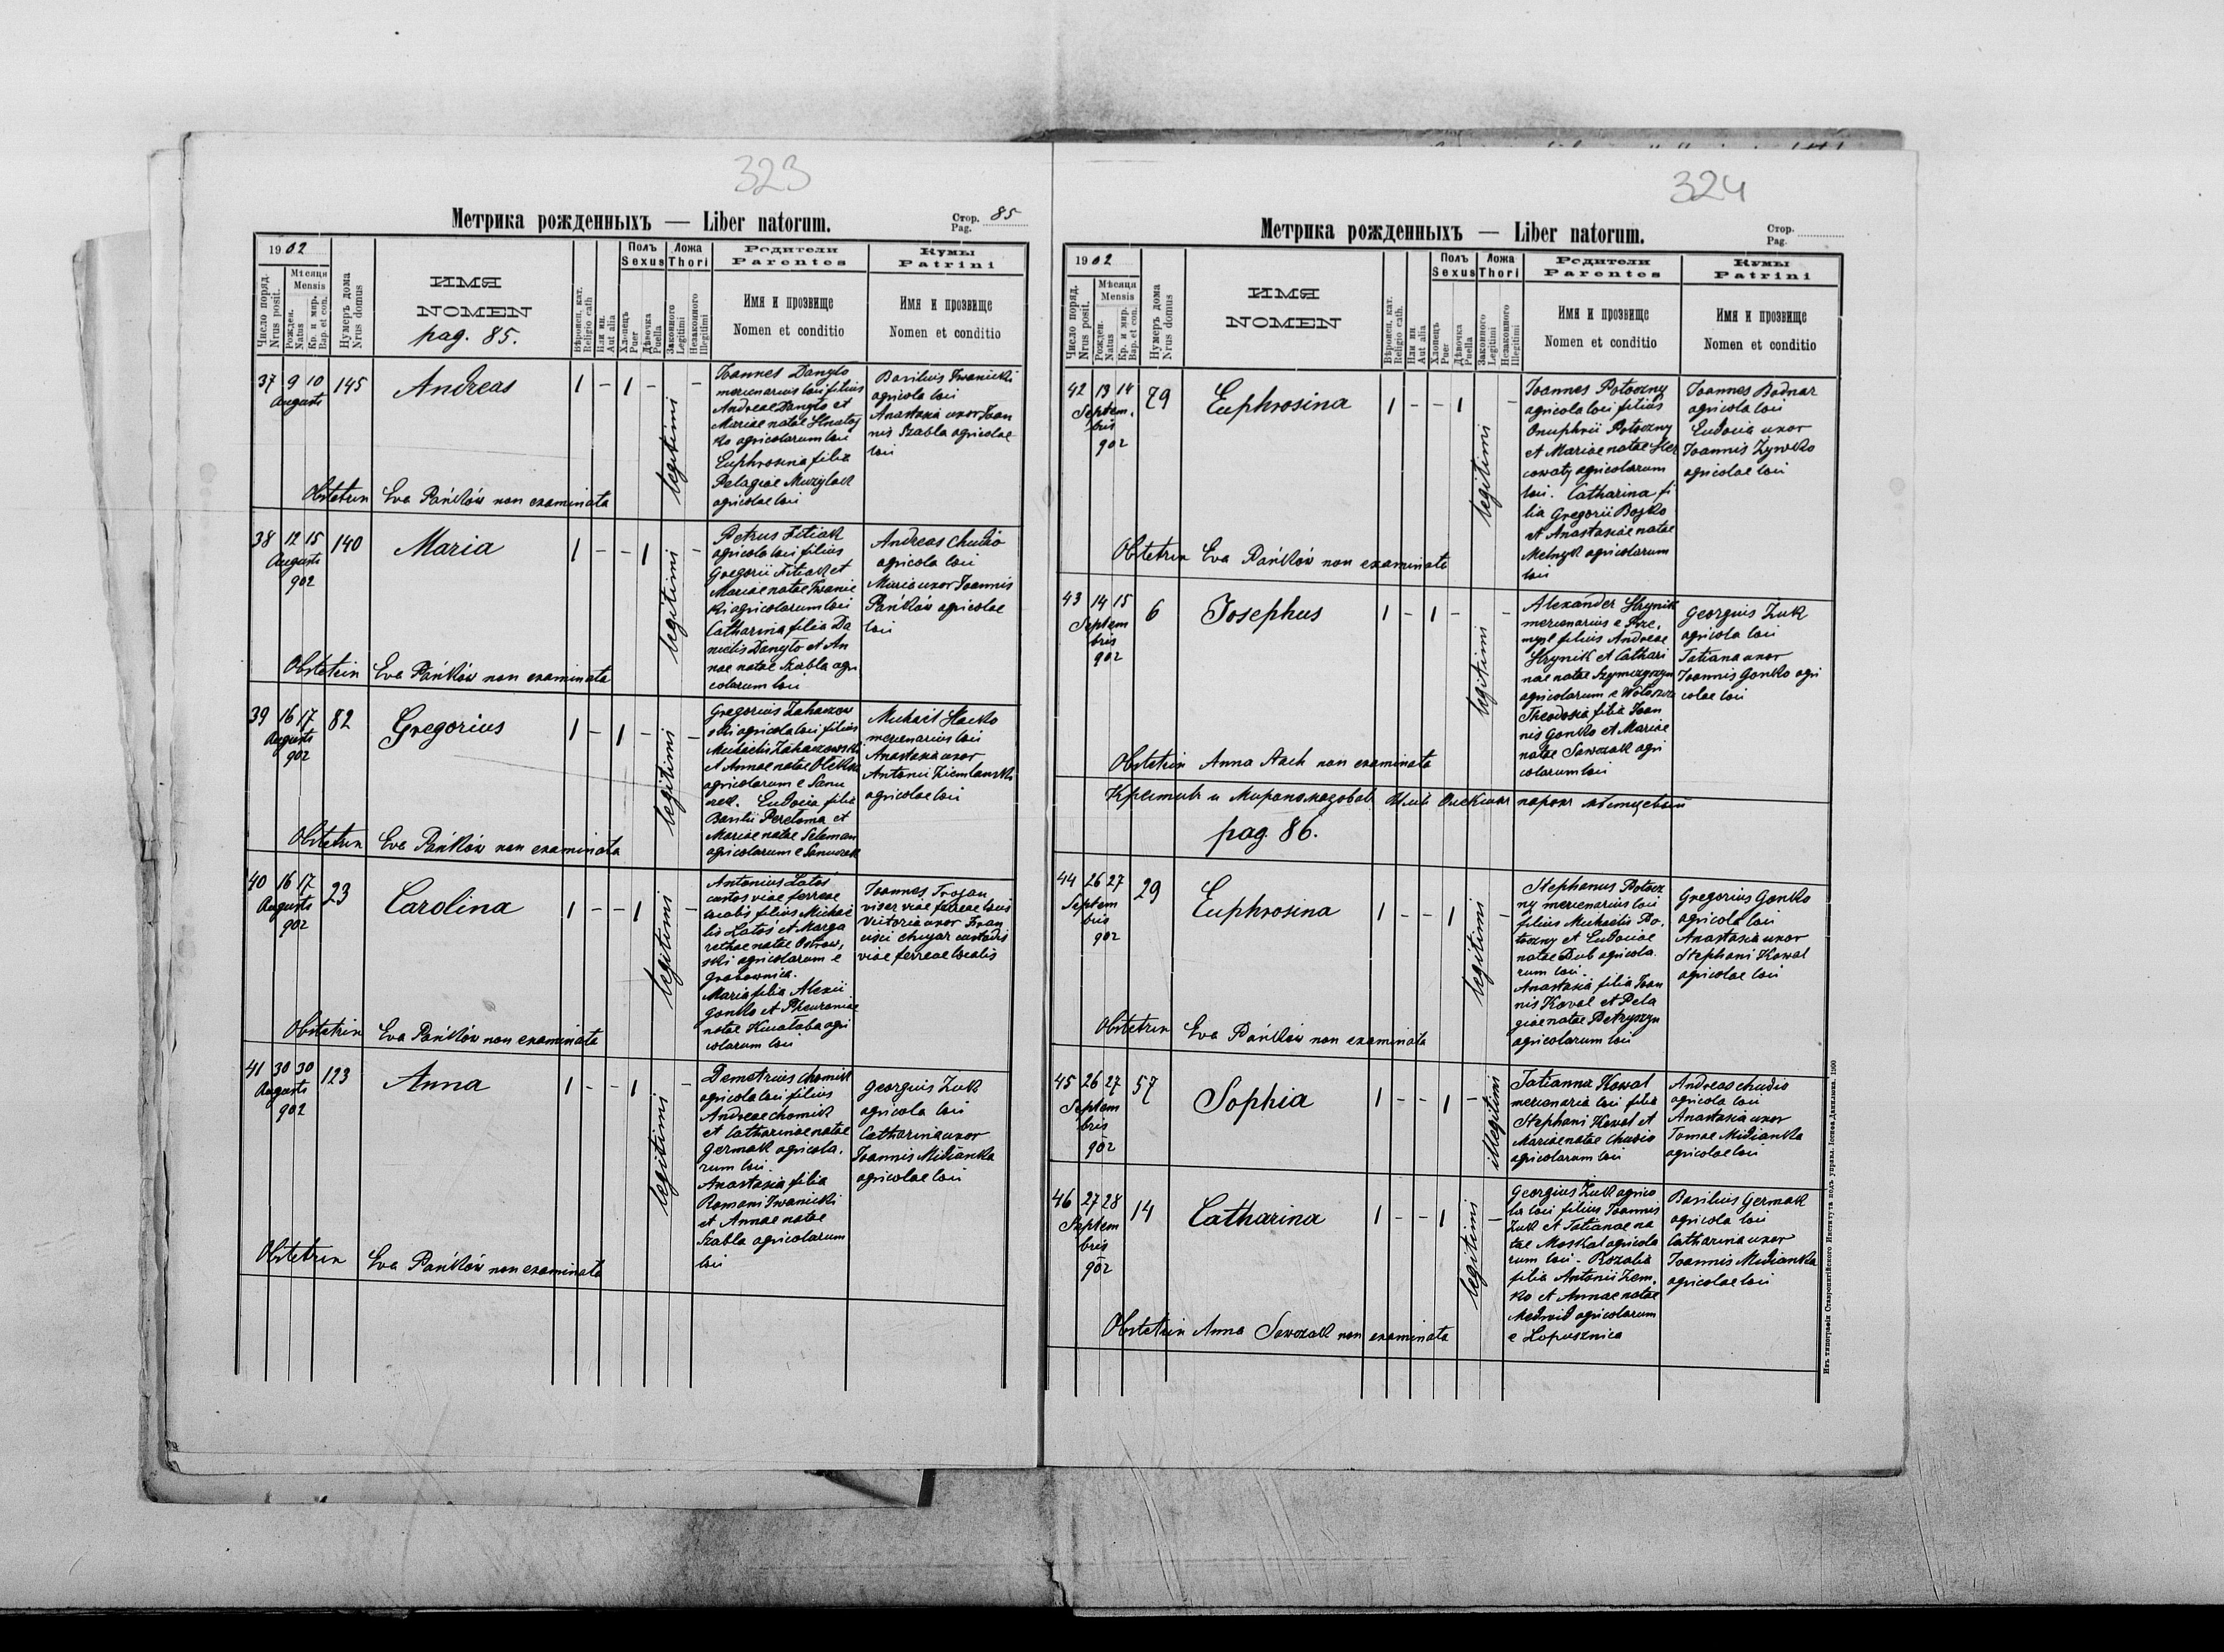 323
Метрика рожденныхъ — Liber natorum.
Стор. 85
Pag.
1902
Число поряд.
Nrus posit.
Мѣсяця
Mensis
Рожден.
Natus
Кр. и мир.
Bap. et con.
Нумеръ дома
Nrus domus
ИМЯ
NOMEN
pag. 85.
Вѣроисп. кат.
Religio cath
Или ин.
Aut alia
Полъ
Sexus
Хлопецъ
Puer
Дѣвочка
Puella
Ложа
Thori
Законного
Legitimi
Незаконного
Illegitimi
Родители
Parentes
Имя и прозвище
Nomen et conditio
Кумы
Patrini
Имя и прозвище
Nomen et conditio
37 9 10 145 Andreas 1 - 1 - legitimi -
Augusti
Ioannes Danyło
mercenarius loci filius
Andreae Danyło et
Mariae natae Hnatoj
ko agricolarum loci
Euphrosina filia
Pelagiae Muzyłak
agricolae loci
Basilius Iwanicki
agricola loci
Anastasia uxor Ioan
nis Szabla agricolae
loci
Obstetrix Eva Pańków non examinata
38 12 15 140 Maria 1 - - 1 legitimi -
Augusti
902
Petrus Fitiak
agricola loci filius
Gregorii Fitiak et
Mariae natae Iwanic
ki agricolarum loci
Catharina filia Da
nielis Danyło et An
nae natae Szabla agri
colarum loci
Andreas Chudio
agricola loci
Maria uxor Ioannis
Pańków agricolae
loci
Obstetrix Eva Pańków non examinata
39 16 17 82 Gregorius 1 - 1 - legitimi -
Augusti
902
Gregorius Zahaczow
ski agricola loci filius
Michaelis Zahaczowski
et Annae natae
agricolarum e Sanu
rek. Eudocia filia
Basilii Perełoma et
Mariae natae Seleman
agricolarum e
Michaił Hacko
mercenarius loci
Anastasia uxor
Antonii Ziemlanski
agricolae loci
Obstetrix Eva Pańków non examinata
40 16 17 23 Carolina 1 - - 1 legitimi -
Augusti
902
Antonius Latoś
custos viae ferreae
localis filius Michae
lis Latoś et Marga
rethae natae Ostrow,
ski agricolarum e
Grabownica.
Maria filia Alexii
Gonko et Pheuroniae
natae Kwiataba agri
colarum loci
Ioannes Trojan
viser viae ferreae loci
Victoria uxor Fran
cisci Chuyar custodis
viae ferreae localis
Obstetrix Eva Pańków non examinata
41 30 30 123 Anna 1 - - 1 legitimi -
Augusti
902
Demetrius Chomik
agricola loci filius
Andreae Chomik
et Catharinae natae
Germak agricola,
rum loci.
Anastasia filia
Romani Iwanicki
et Annae natae
Szabla agricolarum
loci
Georgius Żuk
agricola loci
Catharina uxor
Ioannis Midianka
agricolae loci
Obstetrix Eva Pańków non examinata
324
Метрика рожденныхъ — Liber natorum.
Стор.
Pag.
1902
Число поряд.
Nrus posit.
Мѣсяця
Mensis
Рожден.
Natus
Кр. и мир.
Bap. et con.
Нумеръ дома
Nrus domus
ИМЯ
NOMEN
Вѣроисп. кат.
Religio cath.
Или ин
Aut alia
Полъ
Sexus
Хлопецъ
Puer
Дѣвочка
Puella
Ложа
Thori
Законного
Legitimi
Незаконного
Illegitimi
Родители
Parentes
Имя и прозвище
Nomen et conditio
Кумы
Patrini
Имя и прозвище
Nomen et conditio
42 13 14 79 Euphrosina 1 - - 1 legitimi -
Septem,
bris
902
Ioannes Potoczny
agricola loci filius
Onuphrii Potoczny
et Mariae natae Her
cowaty agricolarum
loci. Catharina fi
lia Gregorii Bojko
et Anastasiae natae
Melnyk agricolarum
loci
Ioannes Bodnar
agricola loci
Eudocia uxor
Ioannis Żywko
agricolae loci
Obstetrix Eva Pańków non examinata
43 14 15 6 Iosephus 1 - 1 - legitimi -
Septem
bris
902
Alexander Hrynik
mercenarius e Prze,
myśl filius Andreae
Hrynik et Cathari
nae natae Szymczyszyn
agricolarum e Wołoszcza
Theodosia filia Ioan
nis Gonko et Mariae
natae Sawczak agri
colarum loci
Georgius Żuk
agricola loci
Tatiana uxor
Ioannis Gonko agri
colae loci
Obstetrix Anna Stach non examinata
Крестивъ и Миропомазовавъ парохъ мѣстцевый
pag. 86.
44 26 27 29 Euphrosina 1 - - 1 legitimi -
Septem
bris
902
Stephanus Potocz
ny mercenarius loci
filius Michaelis Po,
toczny et Eudociae
natae Dub agricola
rum loci.
Anastasia filia Ioan
nis Kowal et Pela
giae natae Petryszyn
agricolarum loci
Gregorius Gonko
agricola loci
Anastasia uxor
Stephani Kowal
agricolae loci
Obstetrix Eva Pańków non examinata
45 26 27 57 Sophia 1 - - 1 - illegitimi
Septem
bris
902
Tatianna Kowal
mercenaria loci filia
Stephani Kowal et
Mariae natae Chudio
agricolarum loci
Andreas Chudio
agricola loci
Anastasia uxor
Tomae Midianka
agricolae loci
46 27 28 14 Catharina 1 - - 1 legitimi -
Septem
bris
902
Georgius Żuk agrico
la loci filius Ioannis
Żuk et Tatianae na
tae Moskal agricola
rum loci. Rozalia
filia Antonii Zem,
ko et Annae natae
Medwid agricolarum
e Łopusznica
Basilius Germak
agricola loci
Catharina uxor
Ioannis Midianka
agricolae loci
Obstetrix Anna Sawczak non examinata
Изъ типографіи Ставропигійского Института подъ управл. Іосифа Данилюка. 1900